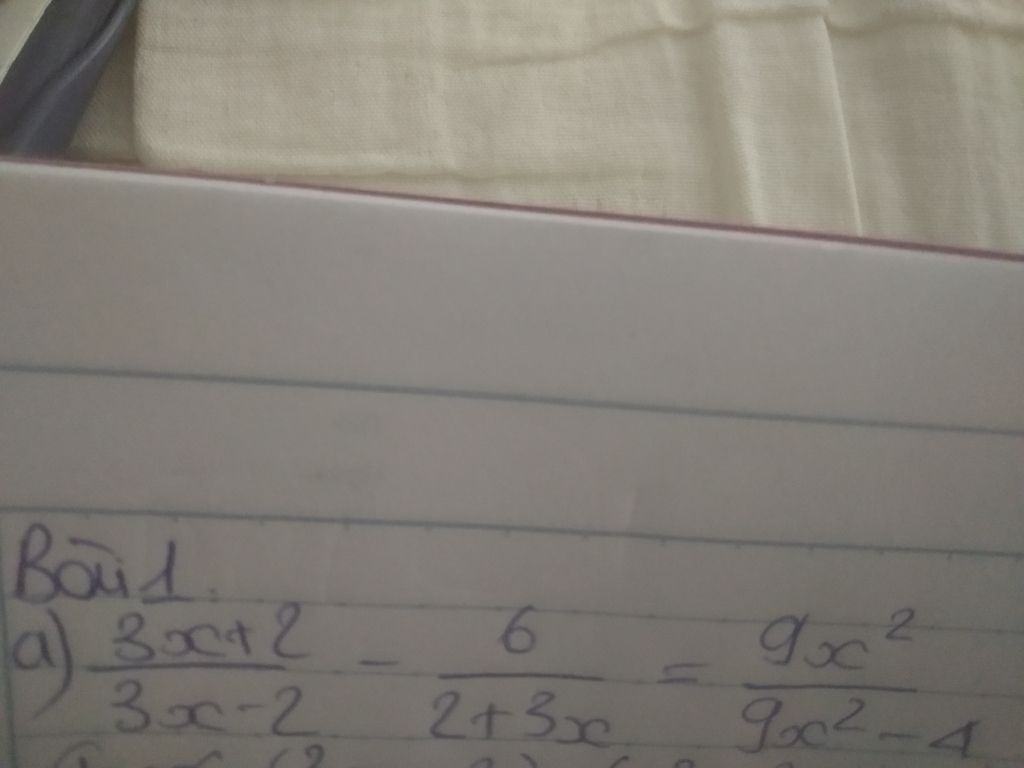 Bài 1.
a) \frac{3x+2}{3x-2} - \frac{6}{2+3x} = \frac{9x^2}{9x^2-4}